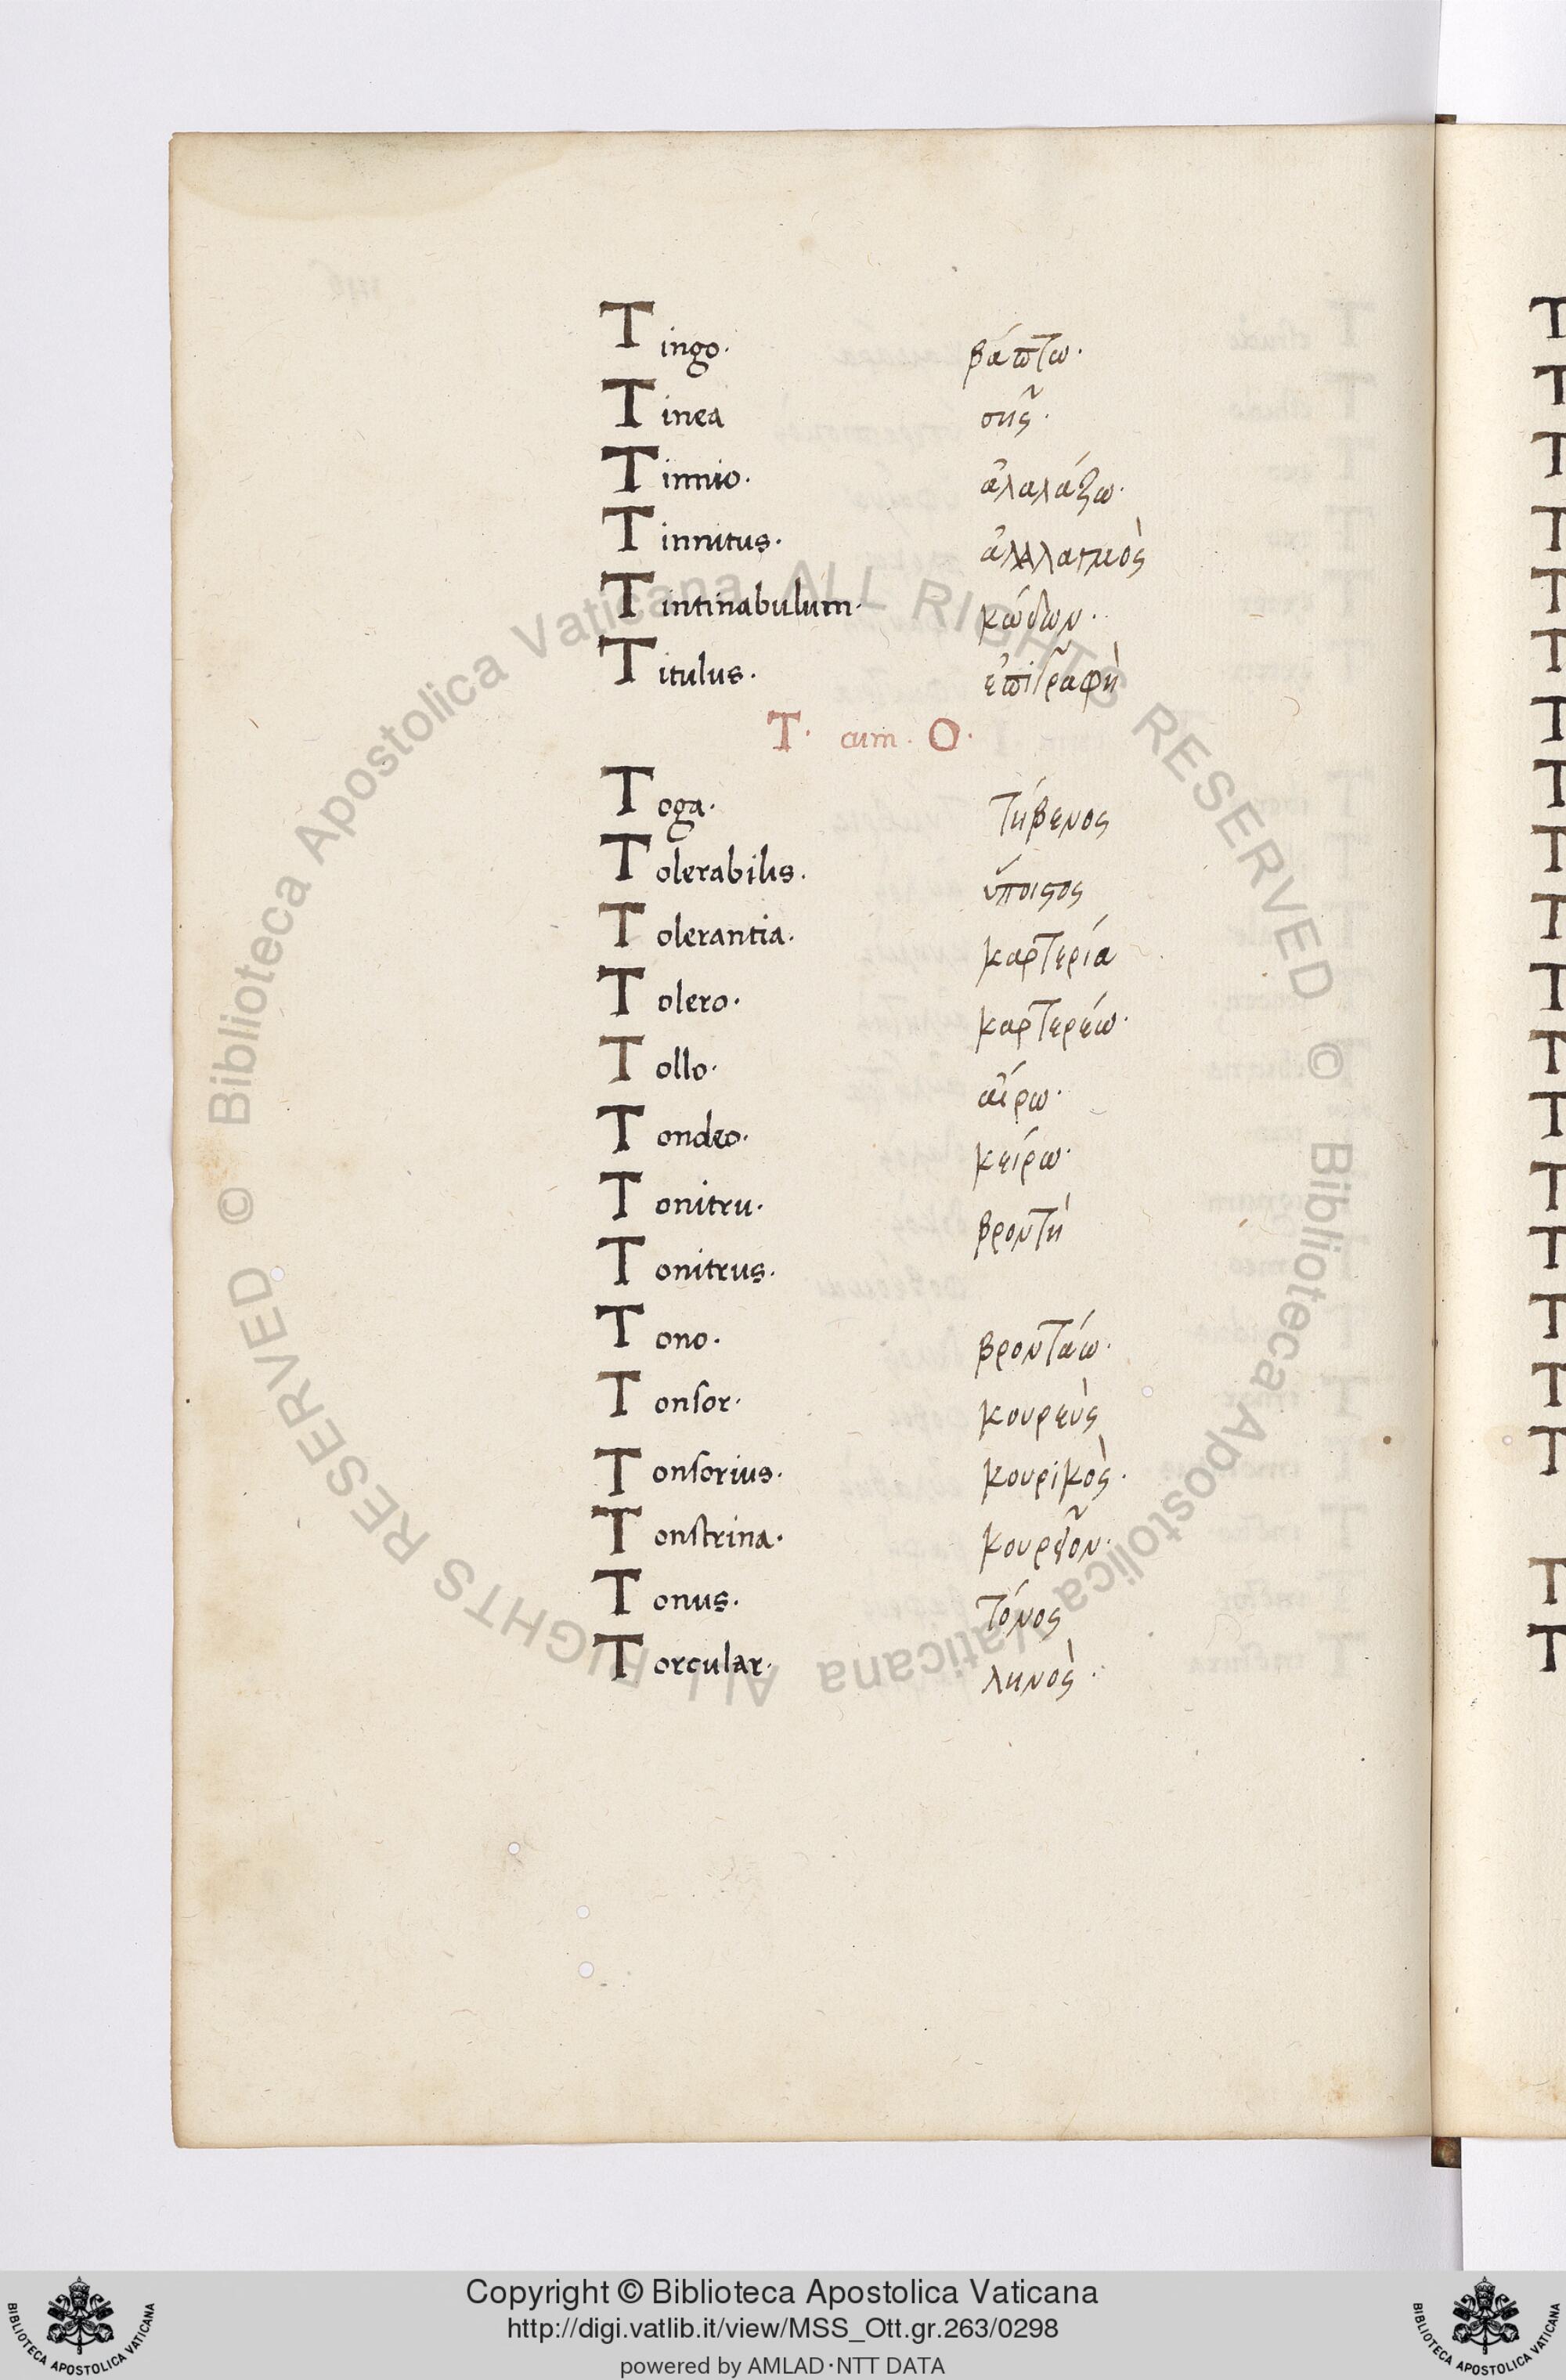 Tingo· βάπτω·
Tinea σῆς·
Tinnio· ἀλαλάζω·
Tinnitus· ἀλαλαγμὸς
Tintinabulum· κώδων·
Titulus· ἐπιγραφὴ
T· cum· O·
Toga· τήβενος
Tolerabilis· ὕποιστος
Tolerantia· καρτερία
Tolero· καρτερέω·
Tollo· αἴρω·
Tondeo· κείρω·
Tonitru· βροντὴ
Tonitrus·
Tono· βροντάω·
Tonsor· κουρεὺς
Tonsorius· κουρικὸς·
Tonstrina· κουρεῖον·
Tonus· τόνος
Torcular· ληνὸς·
© Biblioteca Apostolica Vaticana ALL RIGHTS RESERVED
© Biblioteca Apostolica Vaticana ALL RIGHTS RESERVED
Copyright © Biblioteca Apostolica Vaticana
http://digi.vatlib.it/view/MSS_Ott.gr.263/0298
powered by AMLAD·NTT DATA
BIBLIOTECA APOSTOLICA VATICANA
BIBLIOTECA APOSTOLICA VATICANA